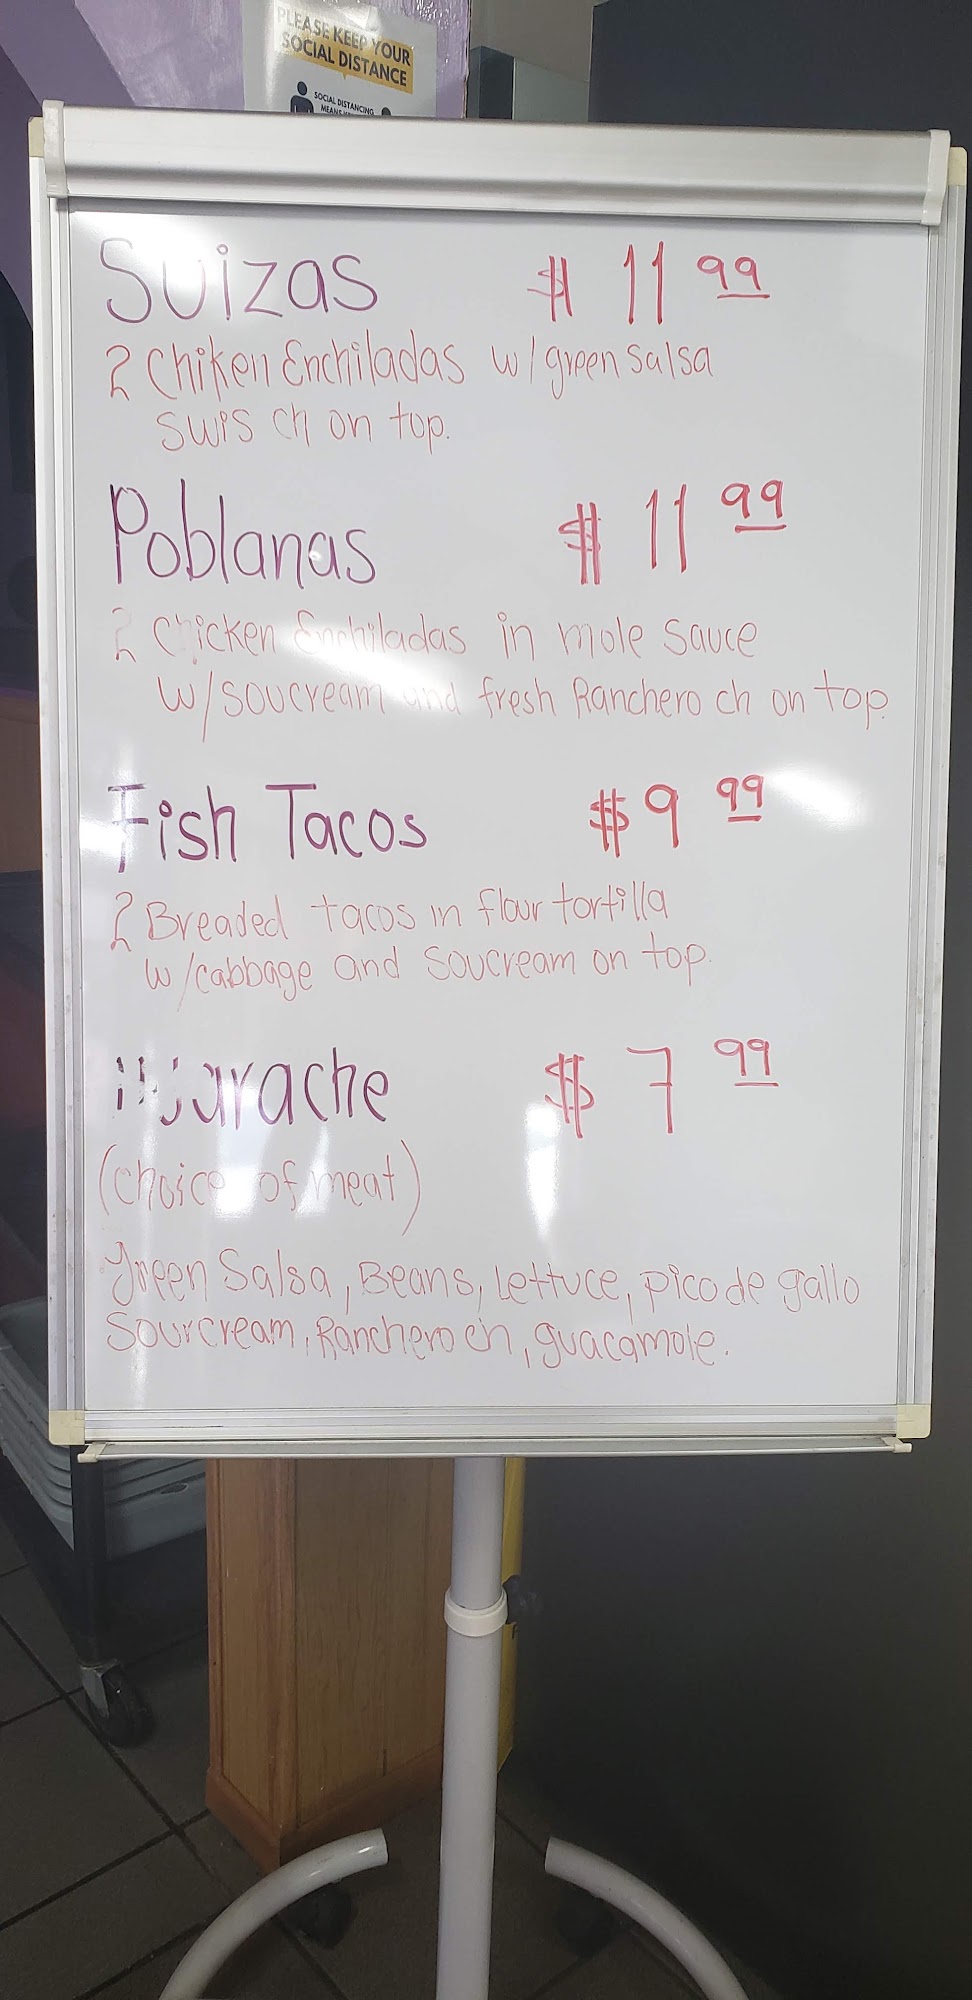 PLEASE KEEP YOUR
SOCIAL DISTANCE
SOCIAL DISTANCING
MEANS
Suizas $ 11 99
2 Chiken Enchiladas w/green salsa
swis ch on top.
Poblanas $ 11 99
2 Chicken Enchiladas in mole sauce
w/soucream and fresh Ranchero ch on top.
Fish Tacos $ 9 99
2 Breaded tacos in flour tortilla
w/cabbage and soucream on top.
Huarache $ 7 99
(choice of meat)
Green Salsa, Beans, Lettuce, pico de gallo
Sourcream, Ranchero ch, guacamole.